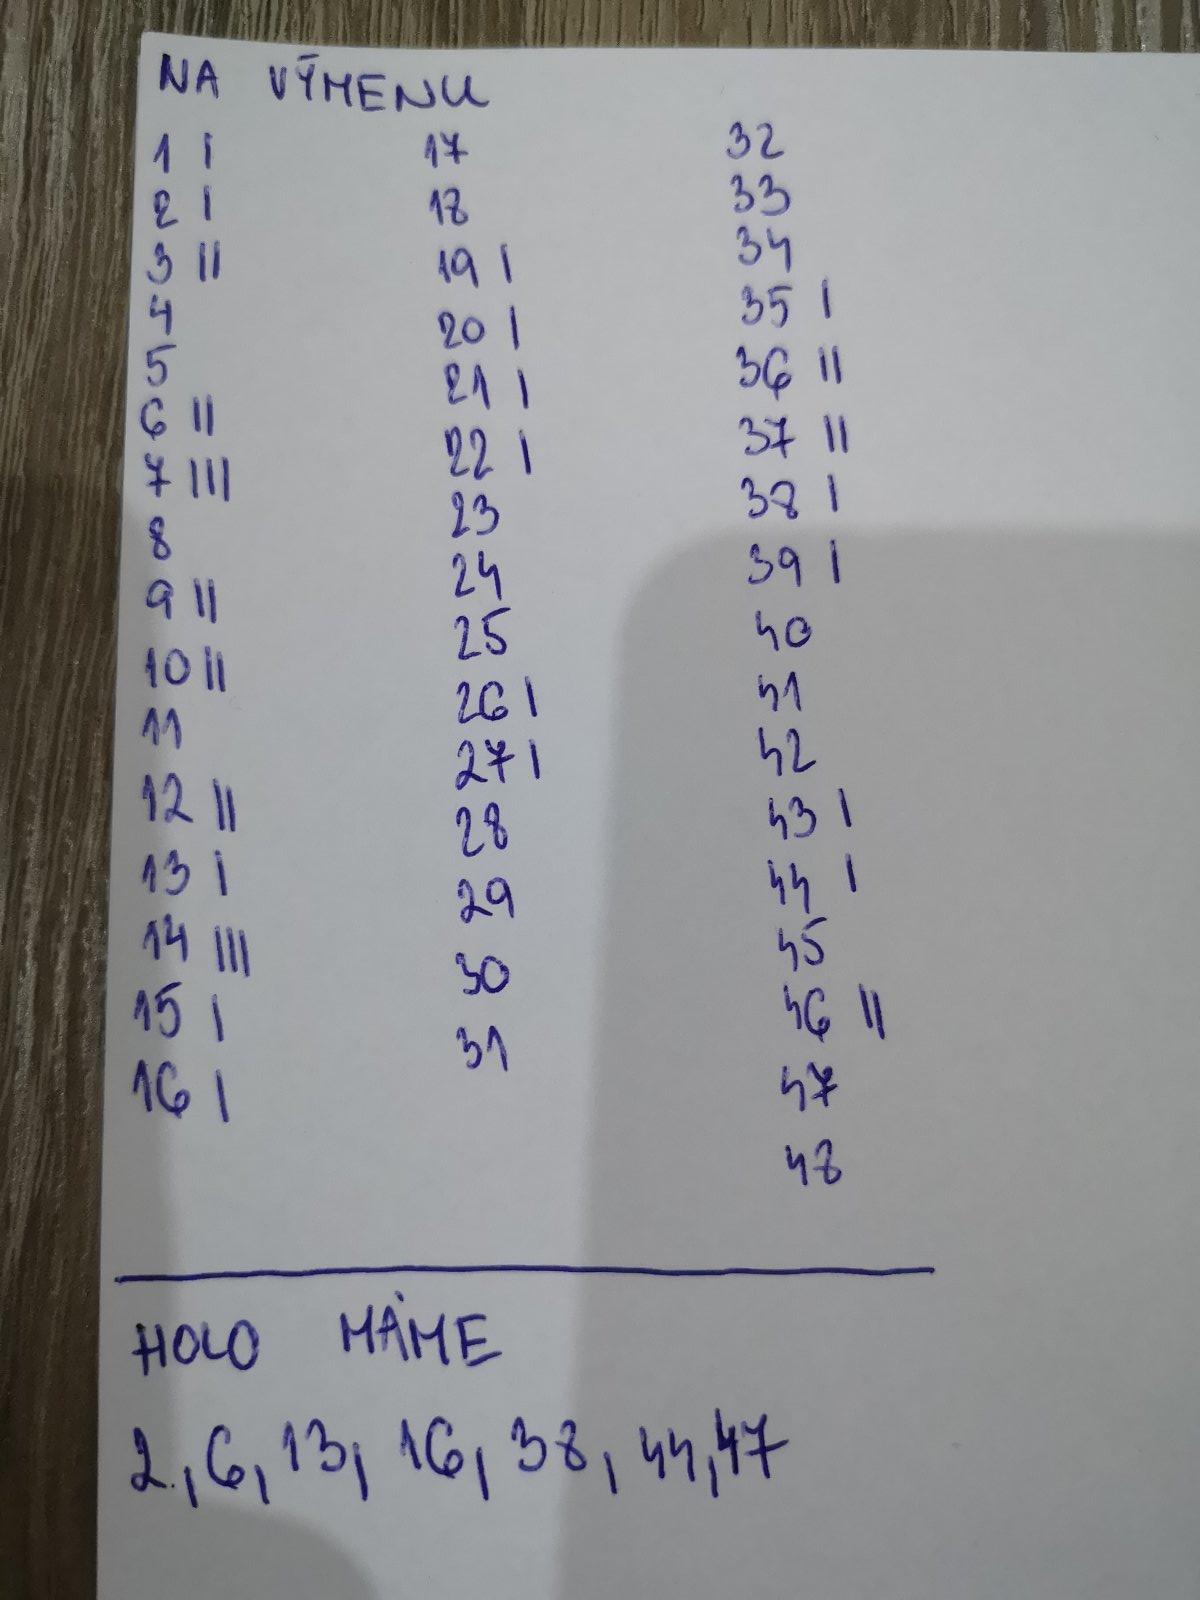 NA VÝMENU
1 I
2 I
3 II
4
5
6 II
7 III
8
9 II
10 II
11
12 II
13 I
14 III
15 I
16 I
17
18
19 I
20 I
21 I
22 I
23
24
25
26 I
27 I
28
29
30
31
32
33
34
35 I
36 II
37 II
38 I
39 I
40
41
42
43 I
44 I
45
46 II
47
48
HOLO MÁME
2, 6, 13, 16, 38, 44, 47